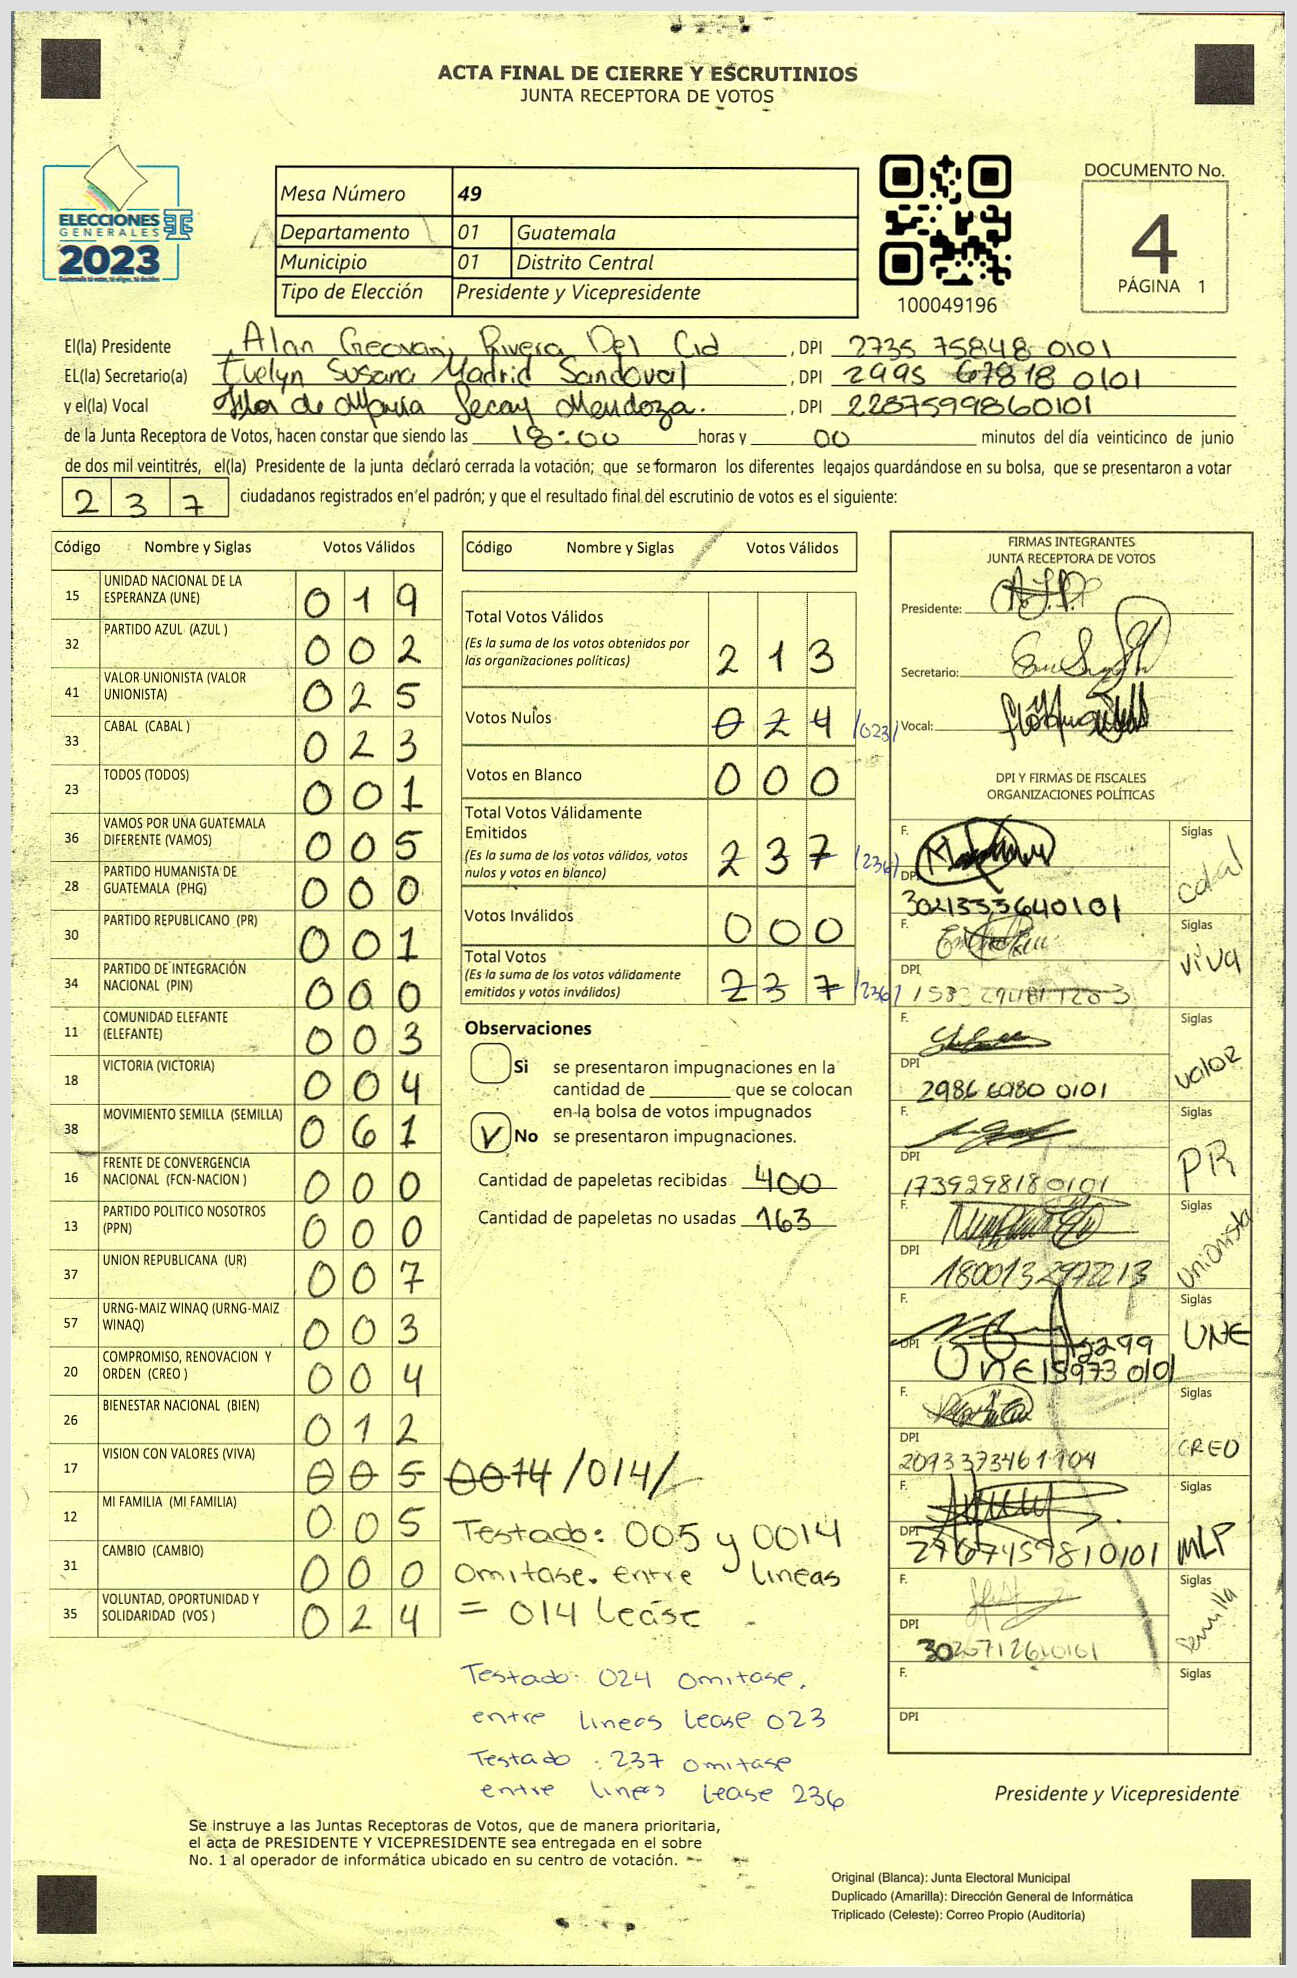 ACTA FINAL DE CIERRE Y ESCRUTINIOS
JUNTA RECEPTORA DE VOTOS
ELECCIONES
GENERALES
2023
Mesa Número 49
Departamento 01 Guatemala
Municipio 01 Distrito Central
Tipo de Elección Presidente y Vicepresidente
100049196
DOCUMENTO No.
4
PÁGINA 1
El(la) Presidente Alan Geovani Rivera Del Cid , DPI 2735 75848 0101
EL(la) Secretario(a) Evelyn Susana Madrid Sandoval , DPI 2995 67818 0101
y el(la) Vocal Flor de María Secay Mendoza. , DPI 2287599860101
de la Junta Receptora de Votos, hacen constar que siendo las 18:00 horas y 00 minutos del día veinticinco de junio
de dos mil veintitrés, el(la) Presidente de la junta declaró cerrada la votación; que se formaron los diferentes legajos guardándose en su bolsa, que se presentaron a votar
237 ciudadanos registrados en el padrón; y que el resultado final del escrutinio de votos es el siguiente:
Código Nombre y Siglas Votos Válidos
15 UNIDAD NACIONAL DE LA ESPERANZA (UNE) 019
32 PARTIDO AZUL (AZUL ) 002
41 VALOR UNIONISTA (VALOR UNIONISTA) 025
33 CABAL (CABAL ) 023
23 TODOS (TODOS) 001
36 VAMOS POR UNA GUATEMALA DIFERENTE (VAMOS) 005
28 PARTIDO HUMANISTA DE GUATEMALA (PHG) 000
30 PARTIDO REPUBLICANO (PR) 001
34 PARTIDO DE INTEGRACIÓN NACIONAL (PIN) 000
11 COMUNIDAD ELEFANTE (ELEFANTE) 003
18 VICTORIA (VICTORIA) 004
38 MOVIMIENTO SEMILLA (SEMILLA) 061
16 FRENTE DE CONVERGENCIA NACIONAL (FCN-NACION ) 000
13 PARTIDO POLITICO NOSOTROS (PPN) 000
37 UNION REPUBLICANA (UR) 007
57 URNG-MAIZ WINAQ (URNG-MAIZ WINAQ) 003
20 COMPROMISO, RENOVACION Y ORDEN (CREO ) 004
26 BIENESTAR NACIONAL (BIEN) 012
17 VISION CON VALORES (VIVA) 005 0014 /014/
12 MI FAMILIA (MI FAMILIA) 005
31 CAMBIO (CAMBIO) 000
35 VOLUNTAD, OPORTUNIDAD Y SOLIDARIDAD (VOS ) 024
Código Nombre y Siglas Votos Válidos
Total Votos Válidos
(Es la suma de los votos obtenidos por las organizaciones políticas) 213
Votos Nulos 024 /023/
Votos en Blanco 000
Total Votos Válidamente Emitidos
(Es la suma de los votos válidos, votos nulos y votos en blanco) 237 /236/
Votos Inválidos 000
Total Votos
(Es la suma de los votos válidamente emitidos y votos inválidos) 237 /236/
Observaciones
Si se presentaron impugnaciones en la
cantidad de ________ que se colocan
en la bolsa de votos impugnados
V No se presentaron impugnaciones.
Cantidad de papeletas recibidas 400
Cantidad de papeletas no usadas 163
Testado: 005 y 0014
omitase. entre lineas
= 014 Lease
Testado: 024 omitase.
entre lineas Lease 023
Testado : 237 omitase
entre lineas Lease 236
FIRMAS INTEGRANTES
JUNTA RECEPTORA DE VOTOS
Presidente:
Secretario:
Vocal:
DPI Y FIRMAS DE FISCALES
ORGANIZACIONES POLÍTICAS
F. Siglas cabal
DPI 3021333640101
F. Siglas viva
DPI
F. Siglas valor
DPI 2986 6080 0101
F. Siglas PR
DPI 1739298180101
F. Siglas Unionista
DPI 1800132972213
F. Siglas UNE
DPI 2299
UNE 15973 0101
F. Siglas CREO
DPI 2093373461904
F. Siglas MLP
DPI 2767459810101
F. Siglas Semilla
DPI
F. Siglas
DPI
Presidente y Vicepresidente
Se instruye a las Juntas Receptoras de Votos, que de manera prioritaria,
el acta de PRESIDENTE Y VICEPRESIDENTE sea entregada en el sobre
No. 1 al operador de informática ubicado en su centro de votación.
Original (Blanca): Junta Electoral Municipal
Duplicado (Amarilla): Dirección General de Informática
Triplicado (Celeste): Correo Propio (Auditoría)